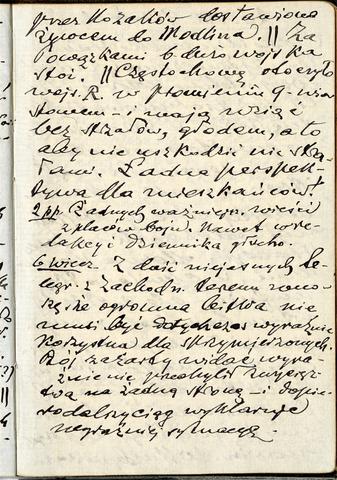 przez Kozaków dostawiono
żywcem do Modlina. || Za
Powązkami b. dużo wojska
stoi. || Częstochowę otoczyło
wojs. R. w promieniu 9-wior
stowem – i mają wziąć
bez strzałów, głodem, a to
aby nie uszkodzić nic strza
łami. Ładna perspek-
tywa dla mieszkańców!
2 pp. Żadnych ważniejsz. wieści
z placów boju. Nawet w re-
dakcyi dziennika głucho.
6 wiecz. Z dość niejasnych te-
legr. z Zachodn. terenu wno-
szę że ogromna bitwa nie
musi być dotychczas wyraźnie
korzystna dla Sprzymierzonych.
Bój zażarty widać wyra
źnie nie przechylił zwycięz-
twa na żadną stronę – i dopie-
ro dalszy ciąg wyklaruje
wyraźniej sytuacyę.